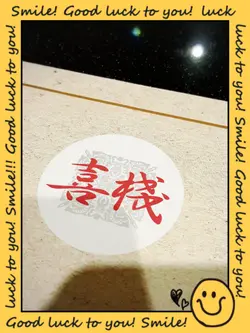 Smile! Good luck to you! luck
luck to you! Smile!!! Good luck to you!
喜栈
Good luck to you! Smile! Good luck to you!
Good luck to you! Smile!